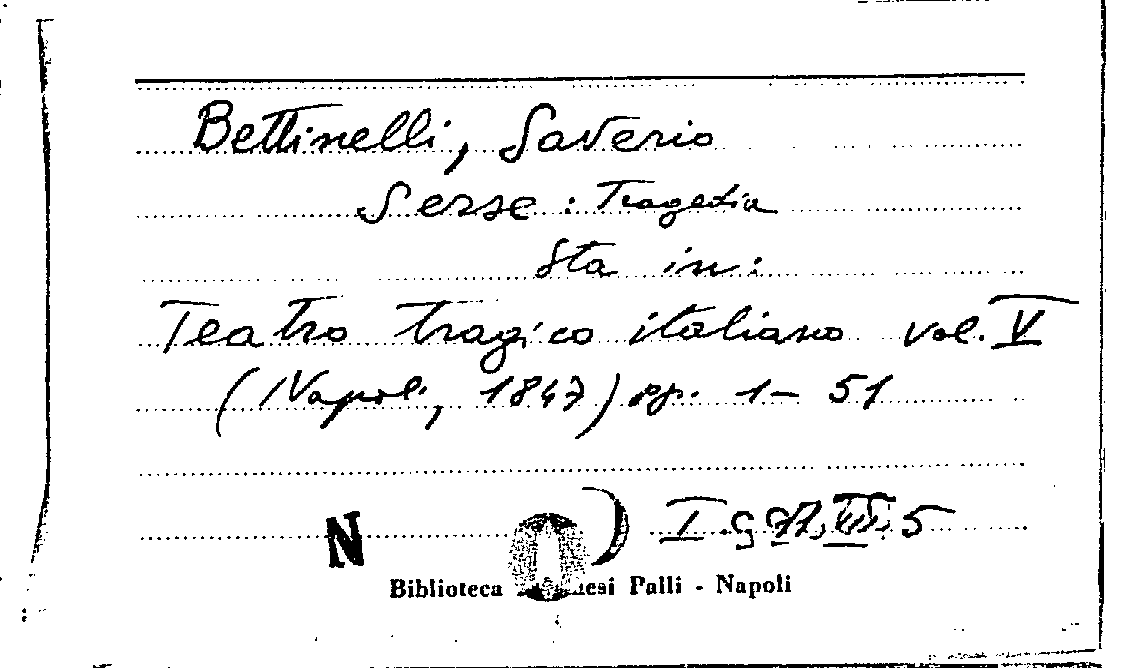 Bettinelli, Saverio
Serse : Tragedia
Sta in:
Teatro tragico italiano vol. V
(Napoli, 1847) pp. 1-51
N ) I. 5
Biblioteca Palli - Napoli